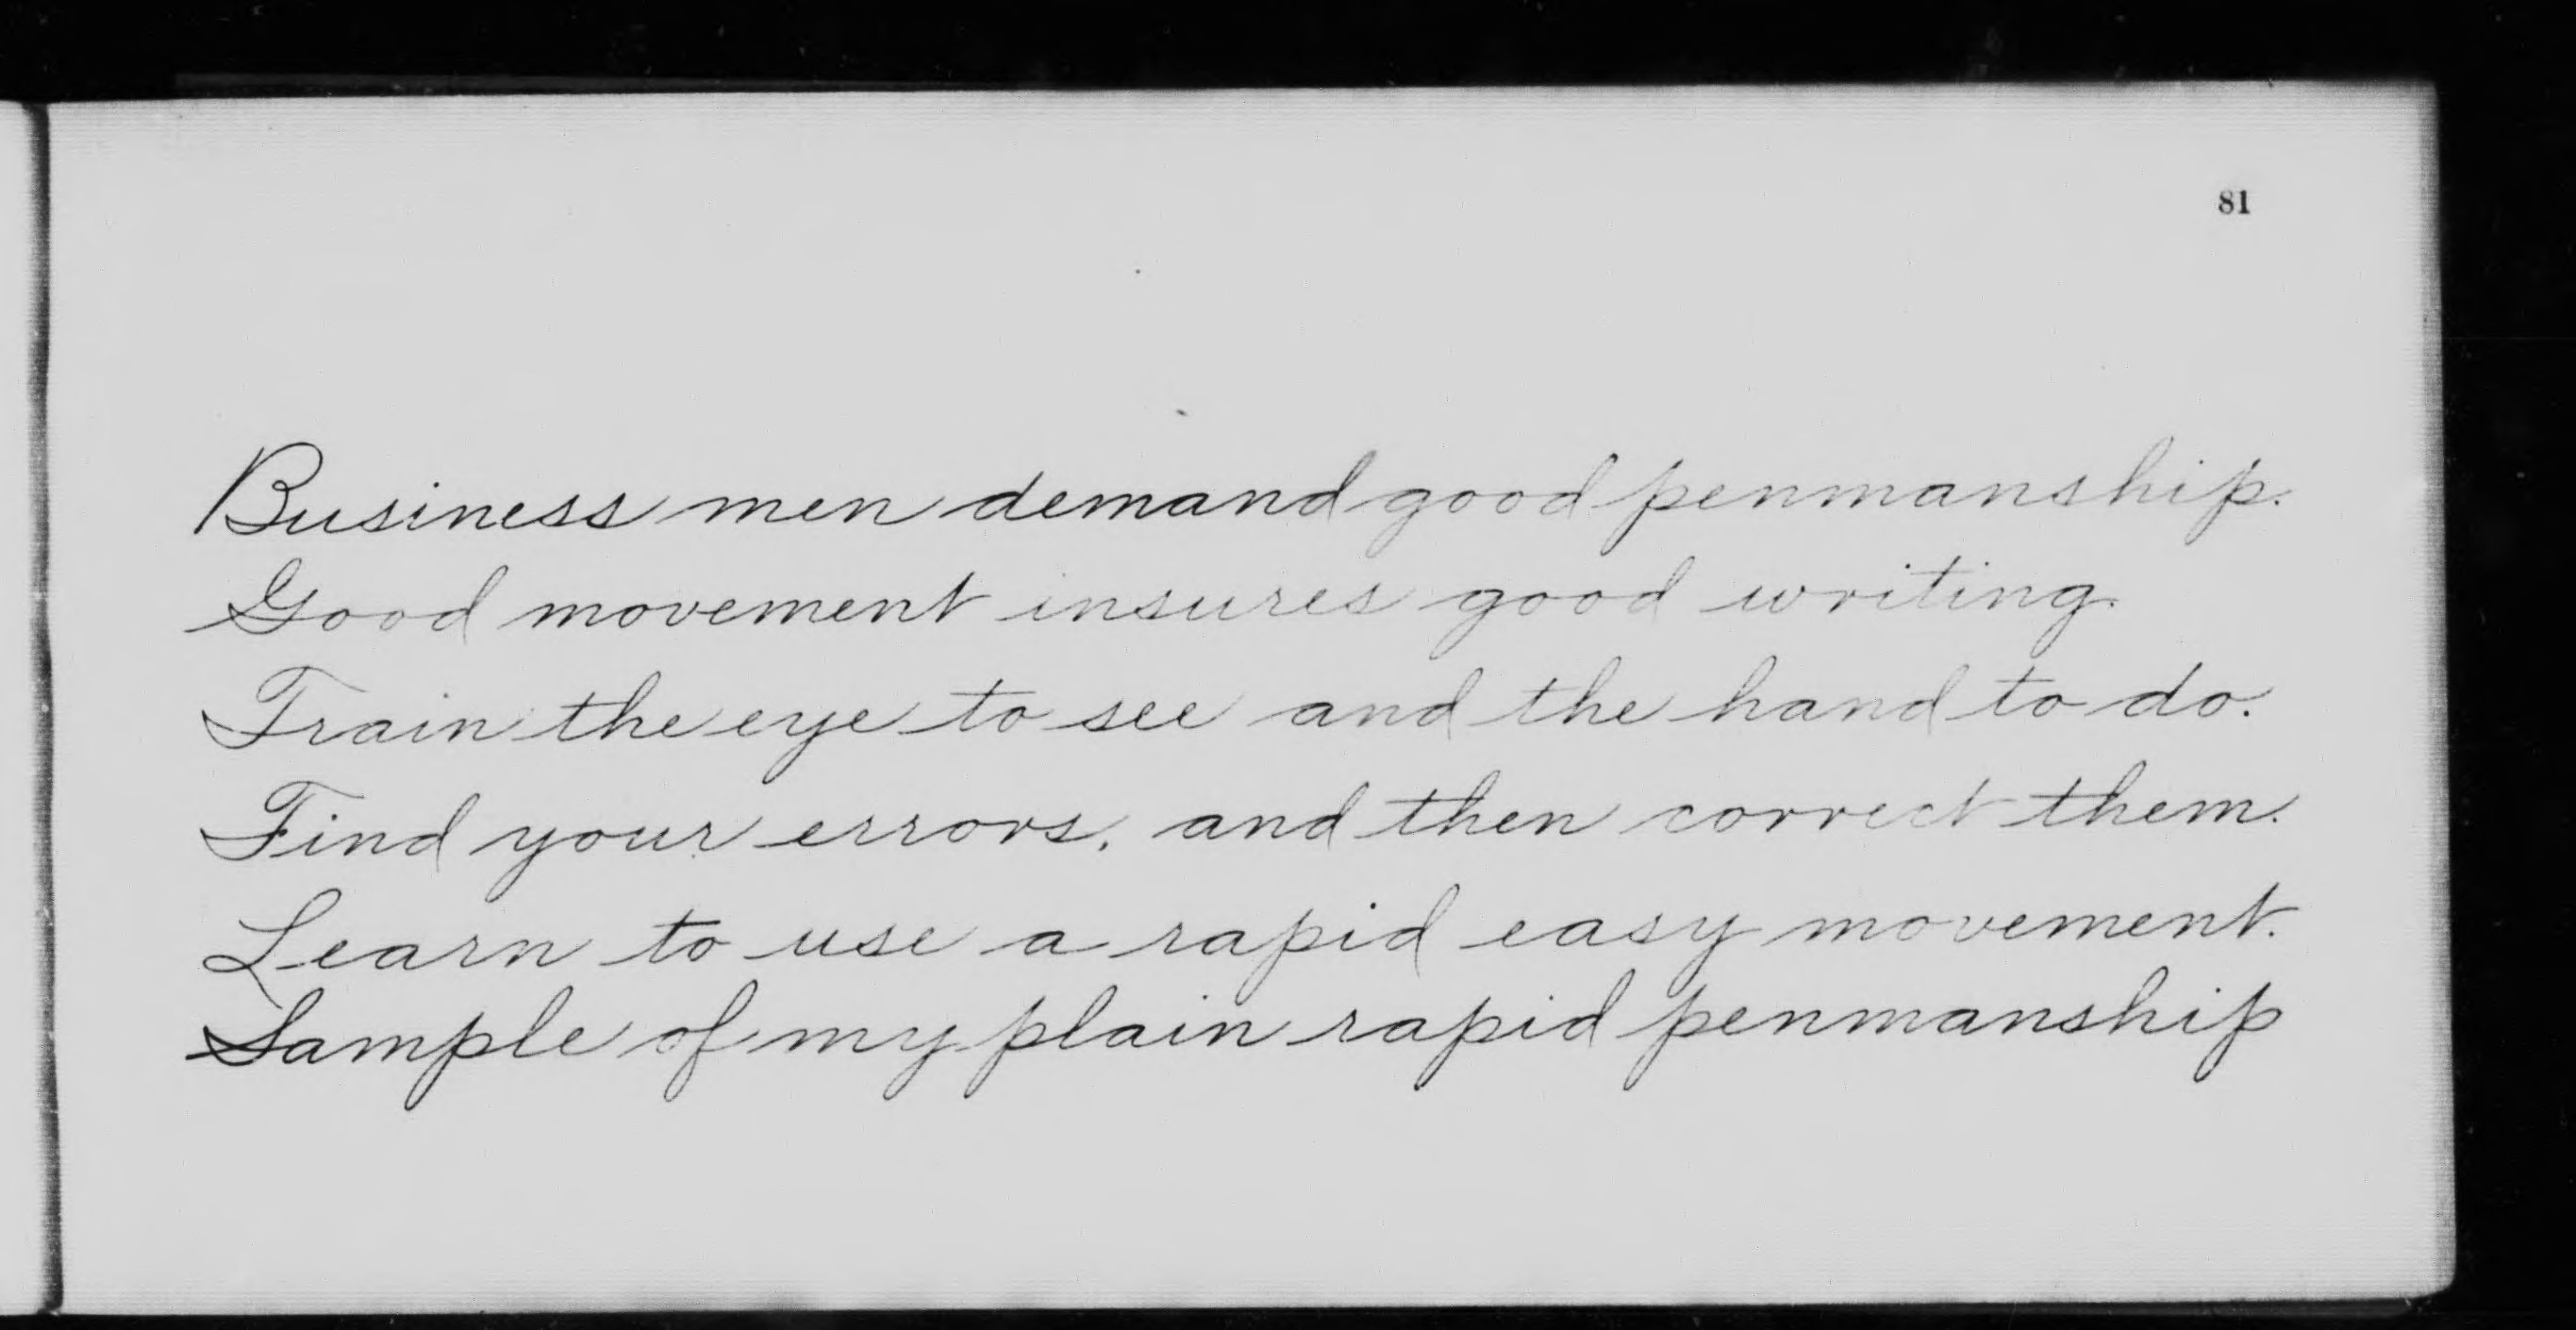 81
Business men demand good penmanship.
Good movement insures good writing.
Train the eye to see and the hand to do.
Find your errors, and then correct them.
Learn to use a rapid easy movement.
Sample of my plain rapid penmanship